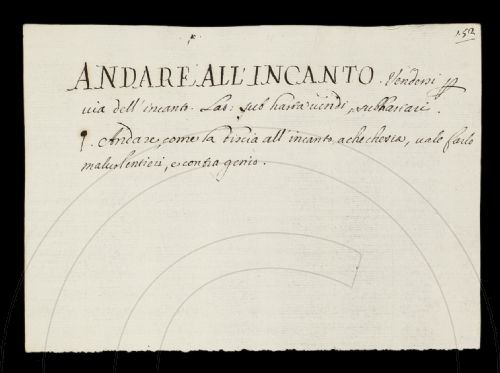 152
ANDARE ALL'INCANTO. Vendersi p
via dell'incanto. Lat: sub hasta vendi, subhastari.
¶. Andare, come la biscia all'incanto, a che che sia, vale farlo
malvolentieri, e contra genio.